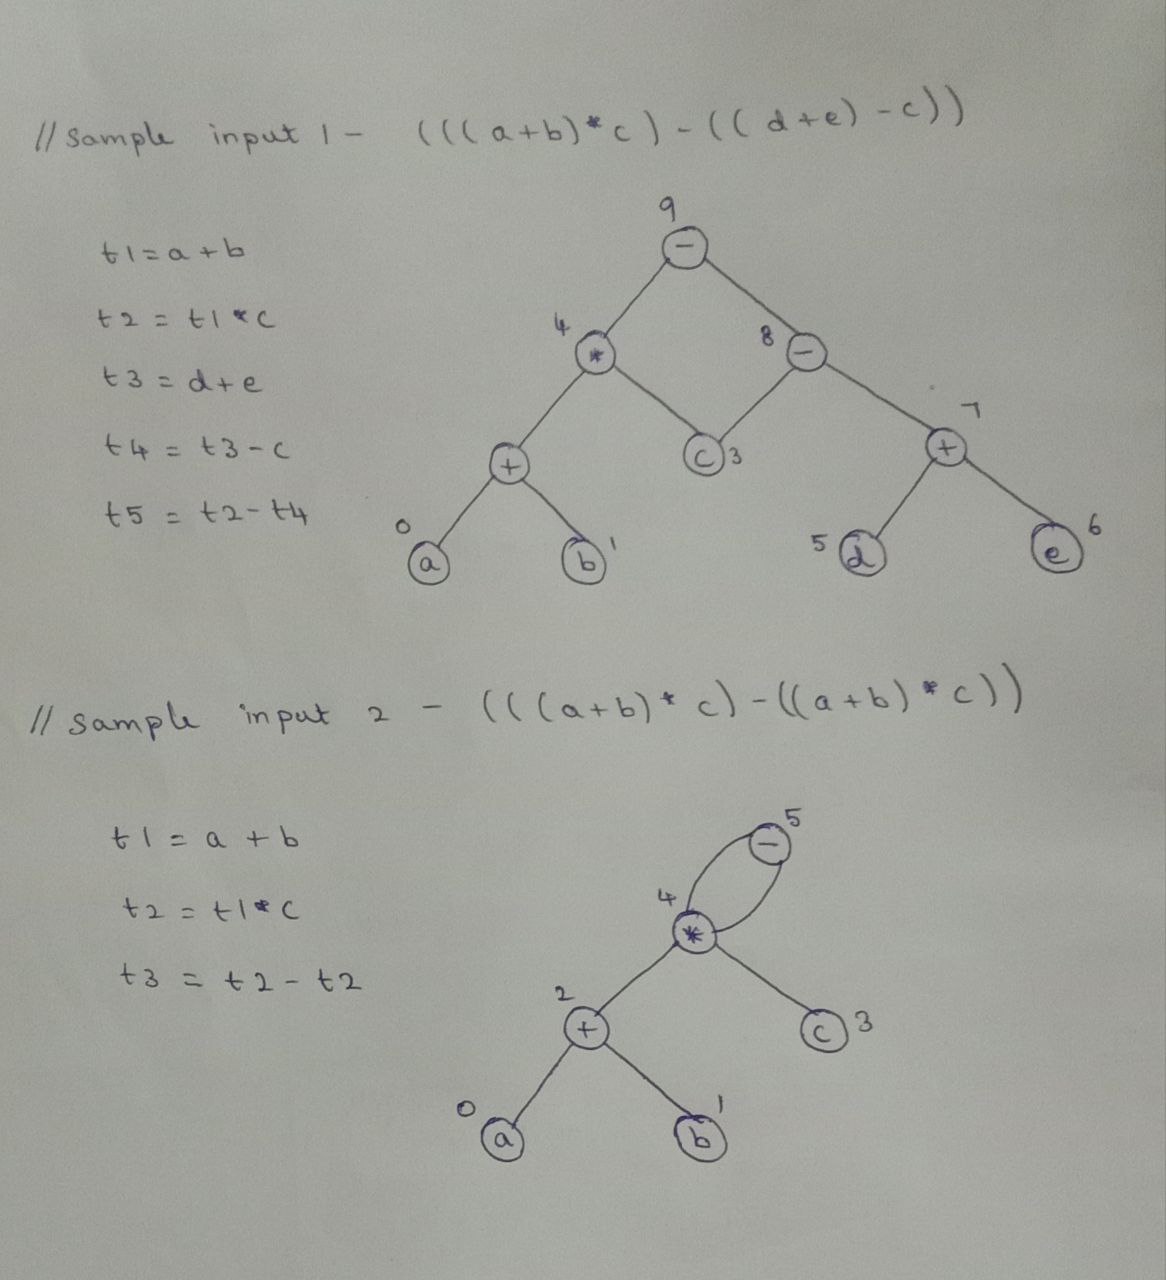 // Sample input 1 - (((a+b)*c)-((d+e)-c))
9
-
t1=a+b
4
*
8
-
t2 = t1*c
t3 = d+e
7
+
c 3
+
t4 = t3-c
t5 = t2-t4
0
a
b
1
5
d
e
6
// sample input 2 - (((a+b)*c)-((a+b)*c))
5
-
t1 = a + b
4
*
t2 = t1*c
t3 = t2-t2
2
+
c 3
0
a
1
b